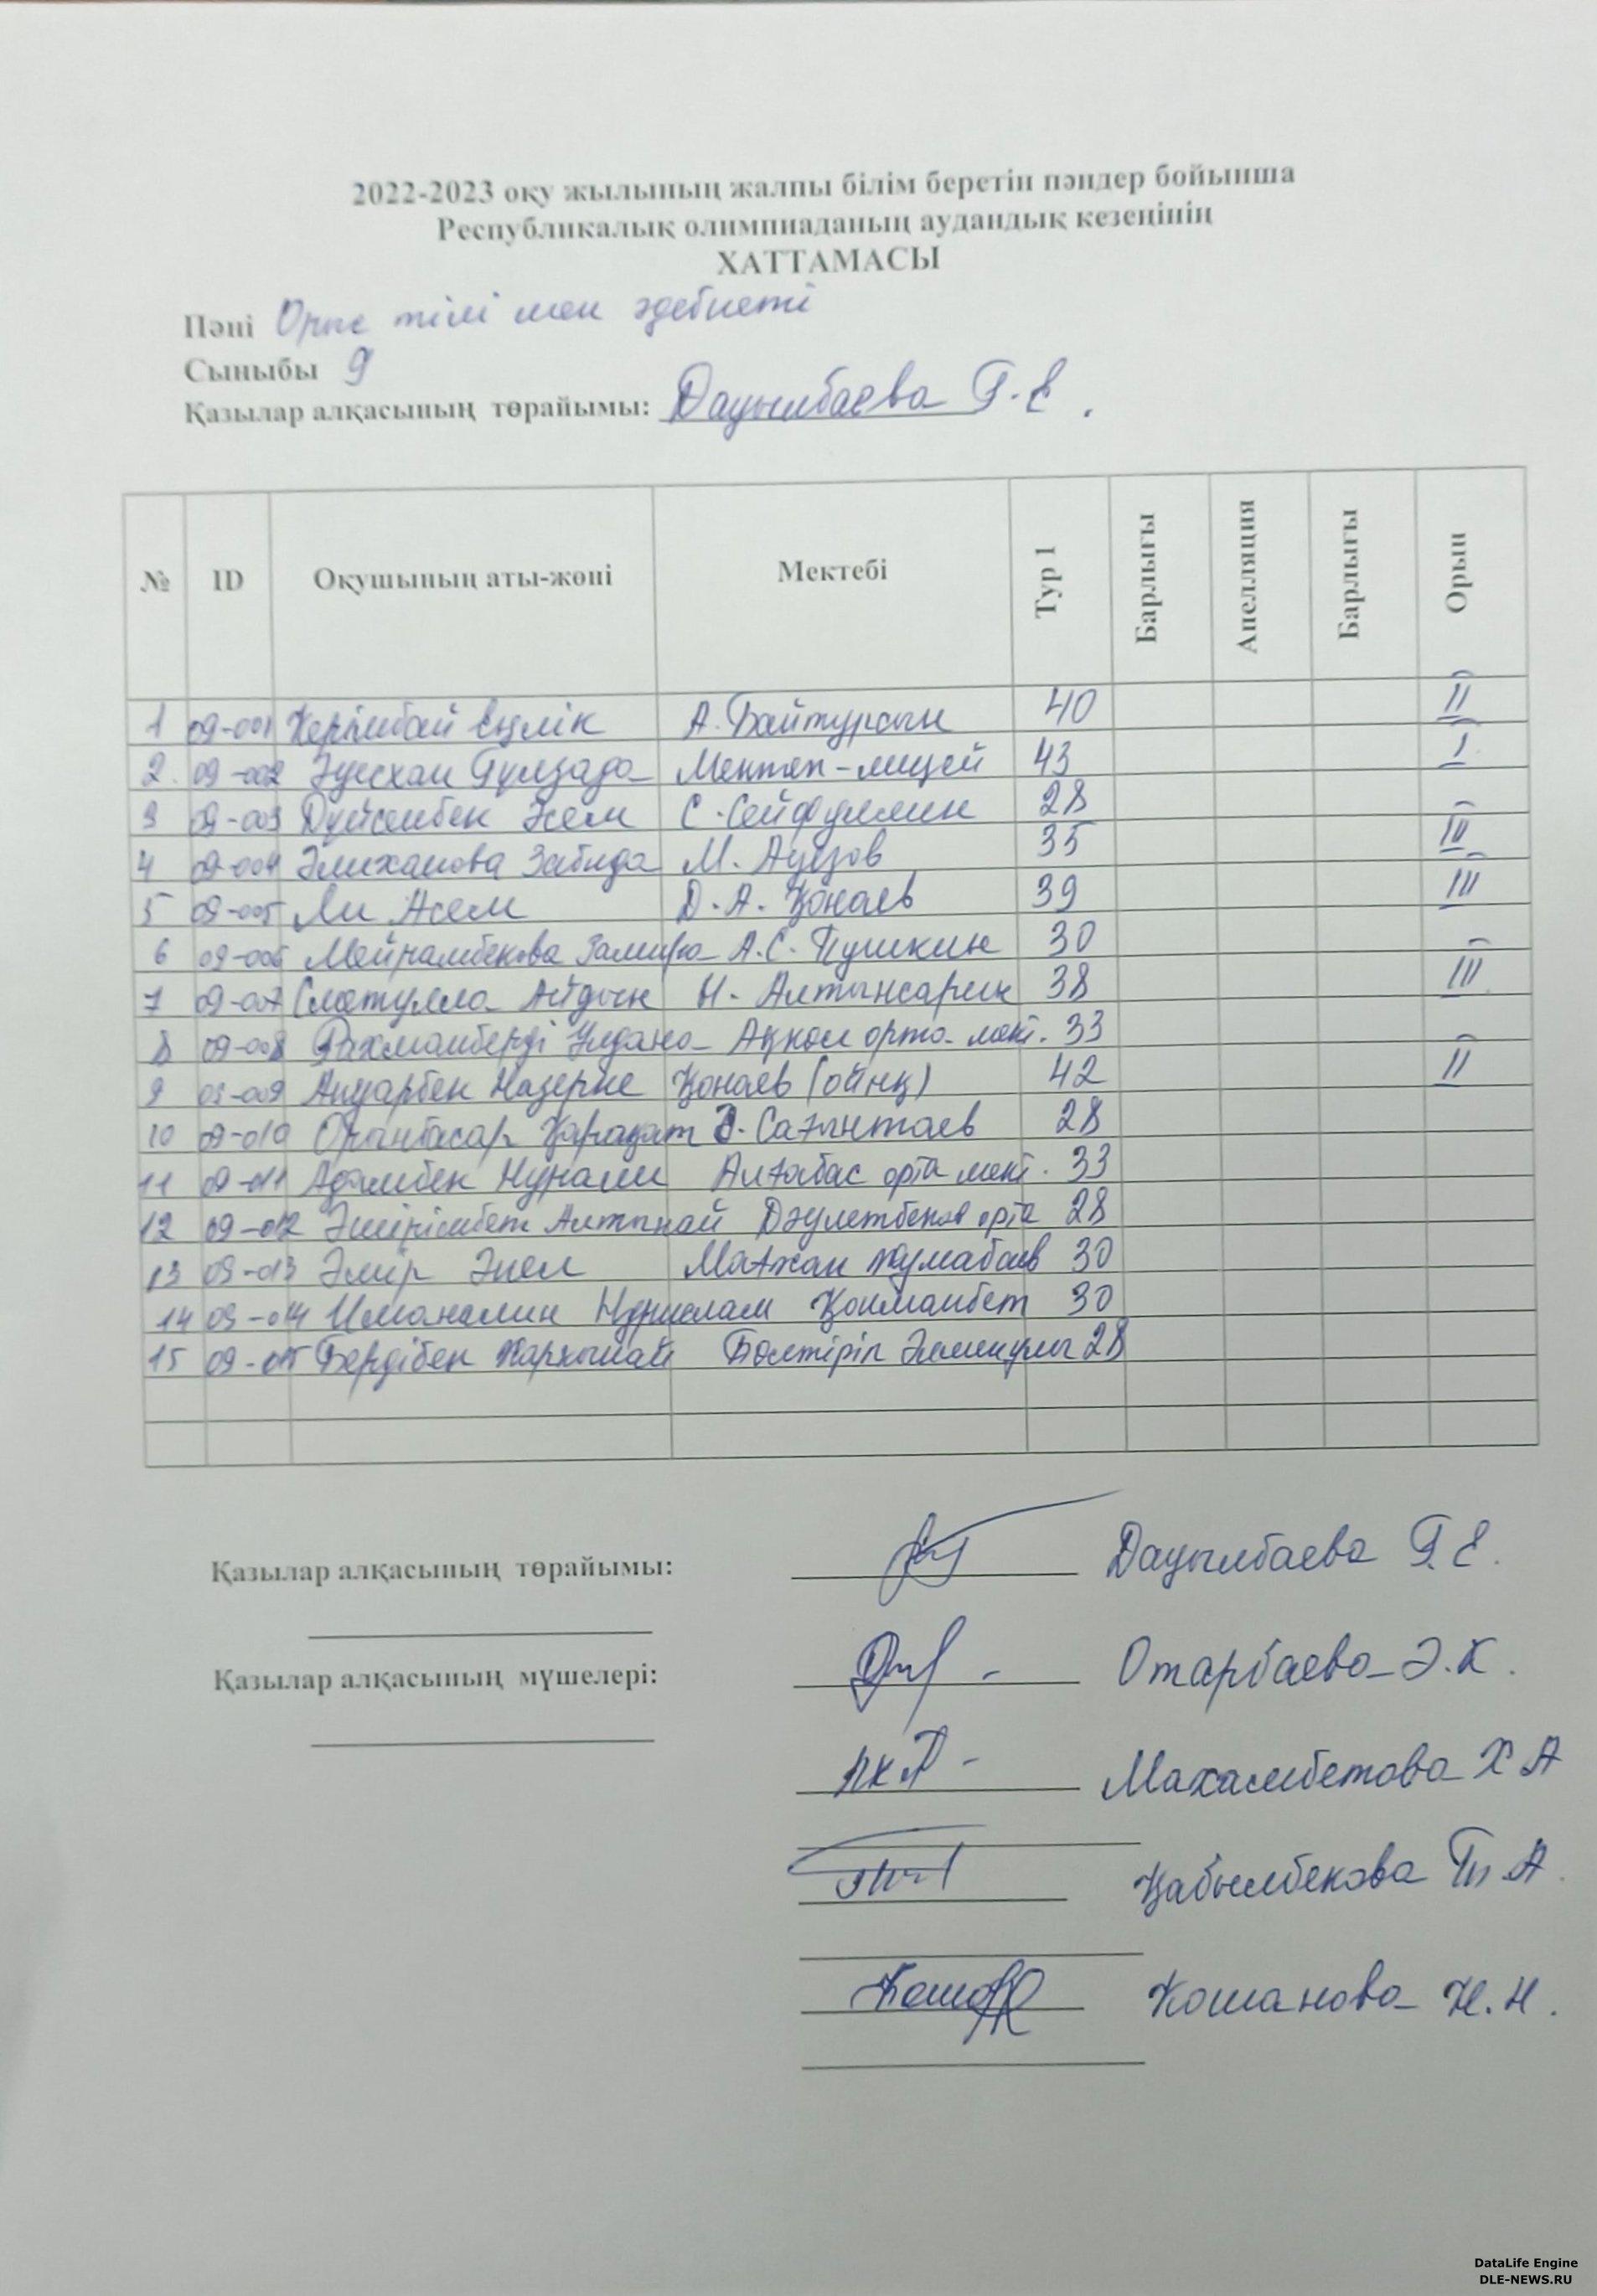 2022-2023 оқу жылының жалпы білім беретін пәндер бойынша
Республикалық олимпиаданың аудандық кезеңінің
ХАТТАМАСЫ
Пәні Орыс тілі мен әдебиеті
Сыныбы 9
Қазылар алқасының төрайымы: Дауылбаева Г.Е.
№ ID Оқушының аты-жөні Мектебі Тур 1 Барлығы Апелляция Барлығы Орын
1 09-001 Керімбай Еңлік А. Байтурсын 40 II
2. 09-002 Гүлзада Мектеп-лицей 43 I
3 09-003 Дүйсенбек Әсем С. Сейфуллин 28
4 09-004 Әлиханова Забида М. Ауезов 35 III
5 09-005 Ли Асем Д.А. Қонаев 39 III
6 09-006 Мейрамбекова Замира А.С. Пушкин 30
7 09-007 Айдын Ы. Алтынсарин 38 III
8 09-008 Рахманберді Ұлдана Ақкөл орта мект. 33
9 09-009 Ануарбек Назерке Қонаев (ойық) 42 II
10 09-010 Орынбасар Қарақат Ә. Сағынтаев 28
11 09-011 Адамбек Нұрали Алғабас орта мект. 33
12 09-012 Әшірімбет Алтынай Дәулетбеков орта 28
13 09-013 Әмір Әнел Мағжан Жумабаев 30
14 09-014 Иманалин Нұрислам Қоймамбет 30
15 09-015 Бердібек Бөлтірік Әлменұлы 28
Қазылар алқасының төрайымы: Дауылбаева Г.Е.
Қазылар алқасының мүшелері: Отарбаева Ә.К.
Махамбетова Х А
Қабылбекова Т. А.
Кошанова Н.Н.
DataLife Engine
DLE-NEWS.RU